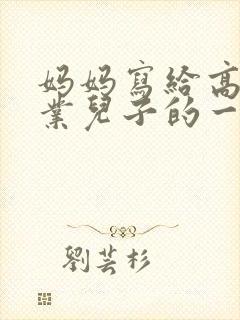 妈妈寫給高
業兒子的一
劉芸杉